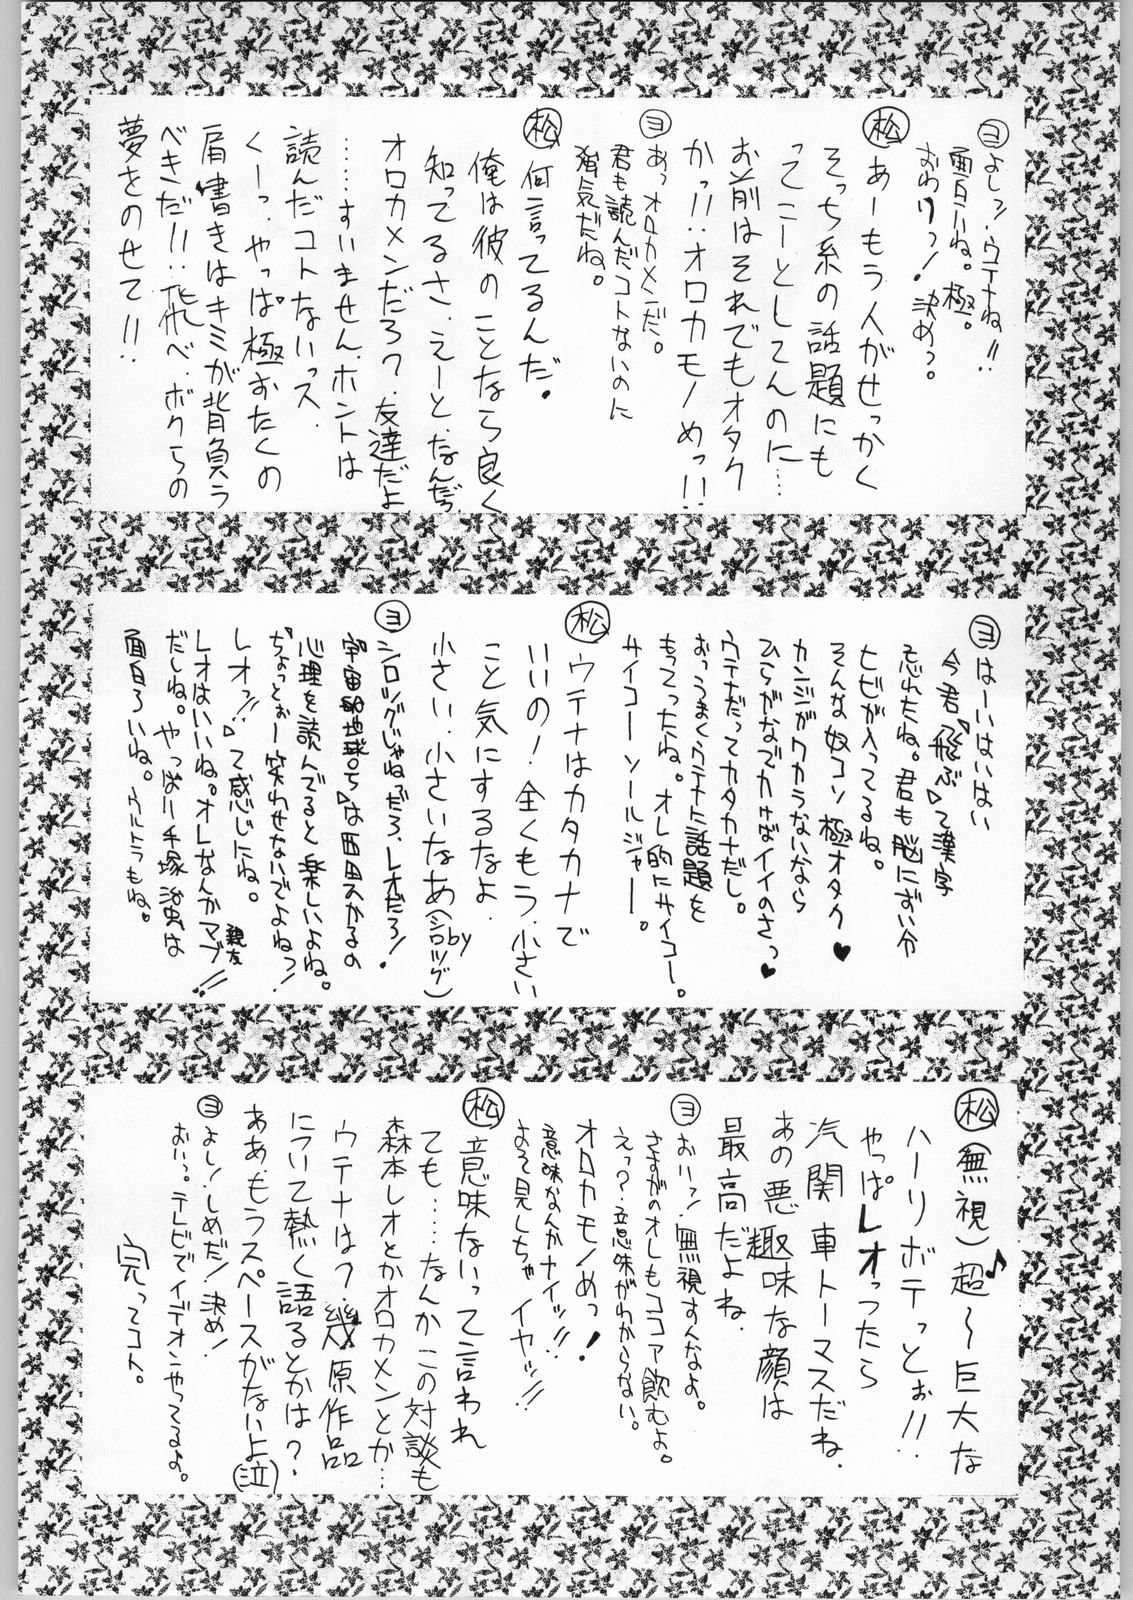 ヨ よしッ!ウテナね!!
面白いね。極。
おわりっ!決めっ。
松 あーもう人がせっかく
そっち系の話題にも
ってこーとしてんのに…
お前はそれでもオタク
かっ!!オロカモノめっ!!
ヨ あっオロカメンだ。
君も読んだコトないのに
強気だね。
松 何言ってるんだ。
俺は彼のことなら良く
知ってるさ.えーと.なんだっ
オロカメンだろ?.友達だよ
……すいません.ホントは
読んだコトないっス.
くーっ.やっぱ極おたくの
肩書きはキミが背負う
べきだ!!飛べ.ボクらの
夢をのせて!!
ヨ はーいはいはい
今君『飛ぶ』って漢字
忘れたね。君も脳にずい分
ヒビが入ってるね。
そんな奴コソ極オタク♥
カンジがワカラないなら
ひらがなでかけばイイのさっ♥
ウテナだってカタカナだし。
おっうまくウテナに話題を
もってったね。オレ的にサイコー。
サイコーソールジャー。
松 ウテナはカタカナで
いいの!全くもう.小さい
こと気にするなよ.
小さい.小さいなあ(by シロッグ)
ヨ シロッグじゃねぇだろ、レオだろ!
『宇宙船地球号』は西田ひかるの
心理を読んでると楽しいよね。
『ちょっとぉー笑わせないでよねっ!
レオッ!!』って感じにね。
レオはいいね。オレなんかマブ!!
親友
だしね。やっぱり手塚治虫は
面白ろいね。ウルトラもね。
松 (無視)超〜巨大な♪
ハーリボテっとぉ!!
やっぱレオっつたら
汽関車トーマスだね.
あの悪趣味な顔は
最高だよね.
ヨ おいッ!無視すんなよ。
さすがのオレもココア飲むよ。
えっ?意味がわからない。
オロカモノめっ!
意味なんかナイッ!!
よって見しちゃイヤッ!!
松 意味ないって言われ
ても……なんかこの対談も
森本レオとかオロカメンとか…
ウテナは?幾原作品
について熱く語るとかは?
ああ.もうスペースがないよ(泣)
ヨ よし!しめだ!決め!
おいっ。テレビでイデオンやってるよ。
完ってコト。